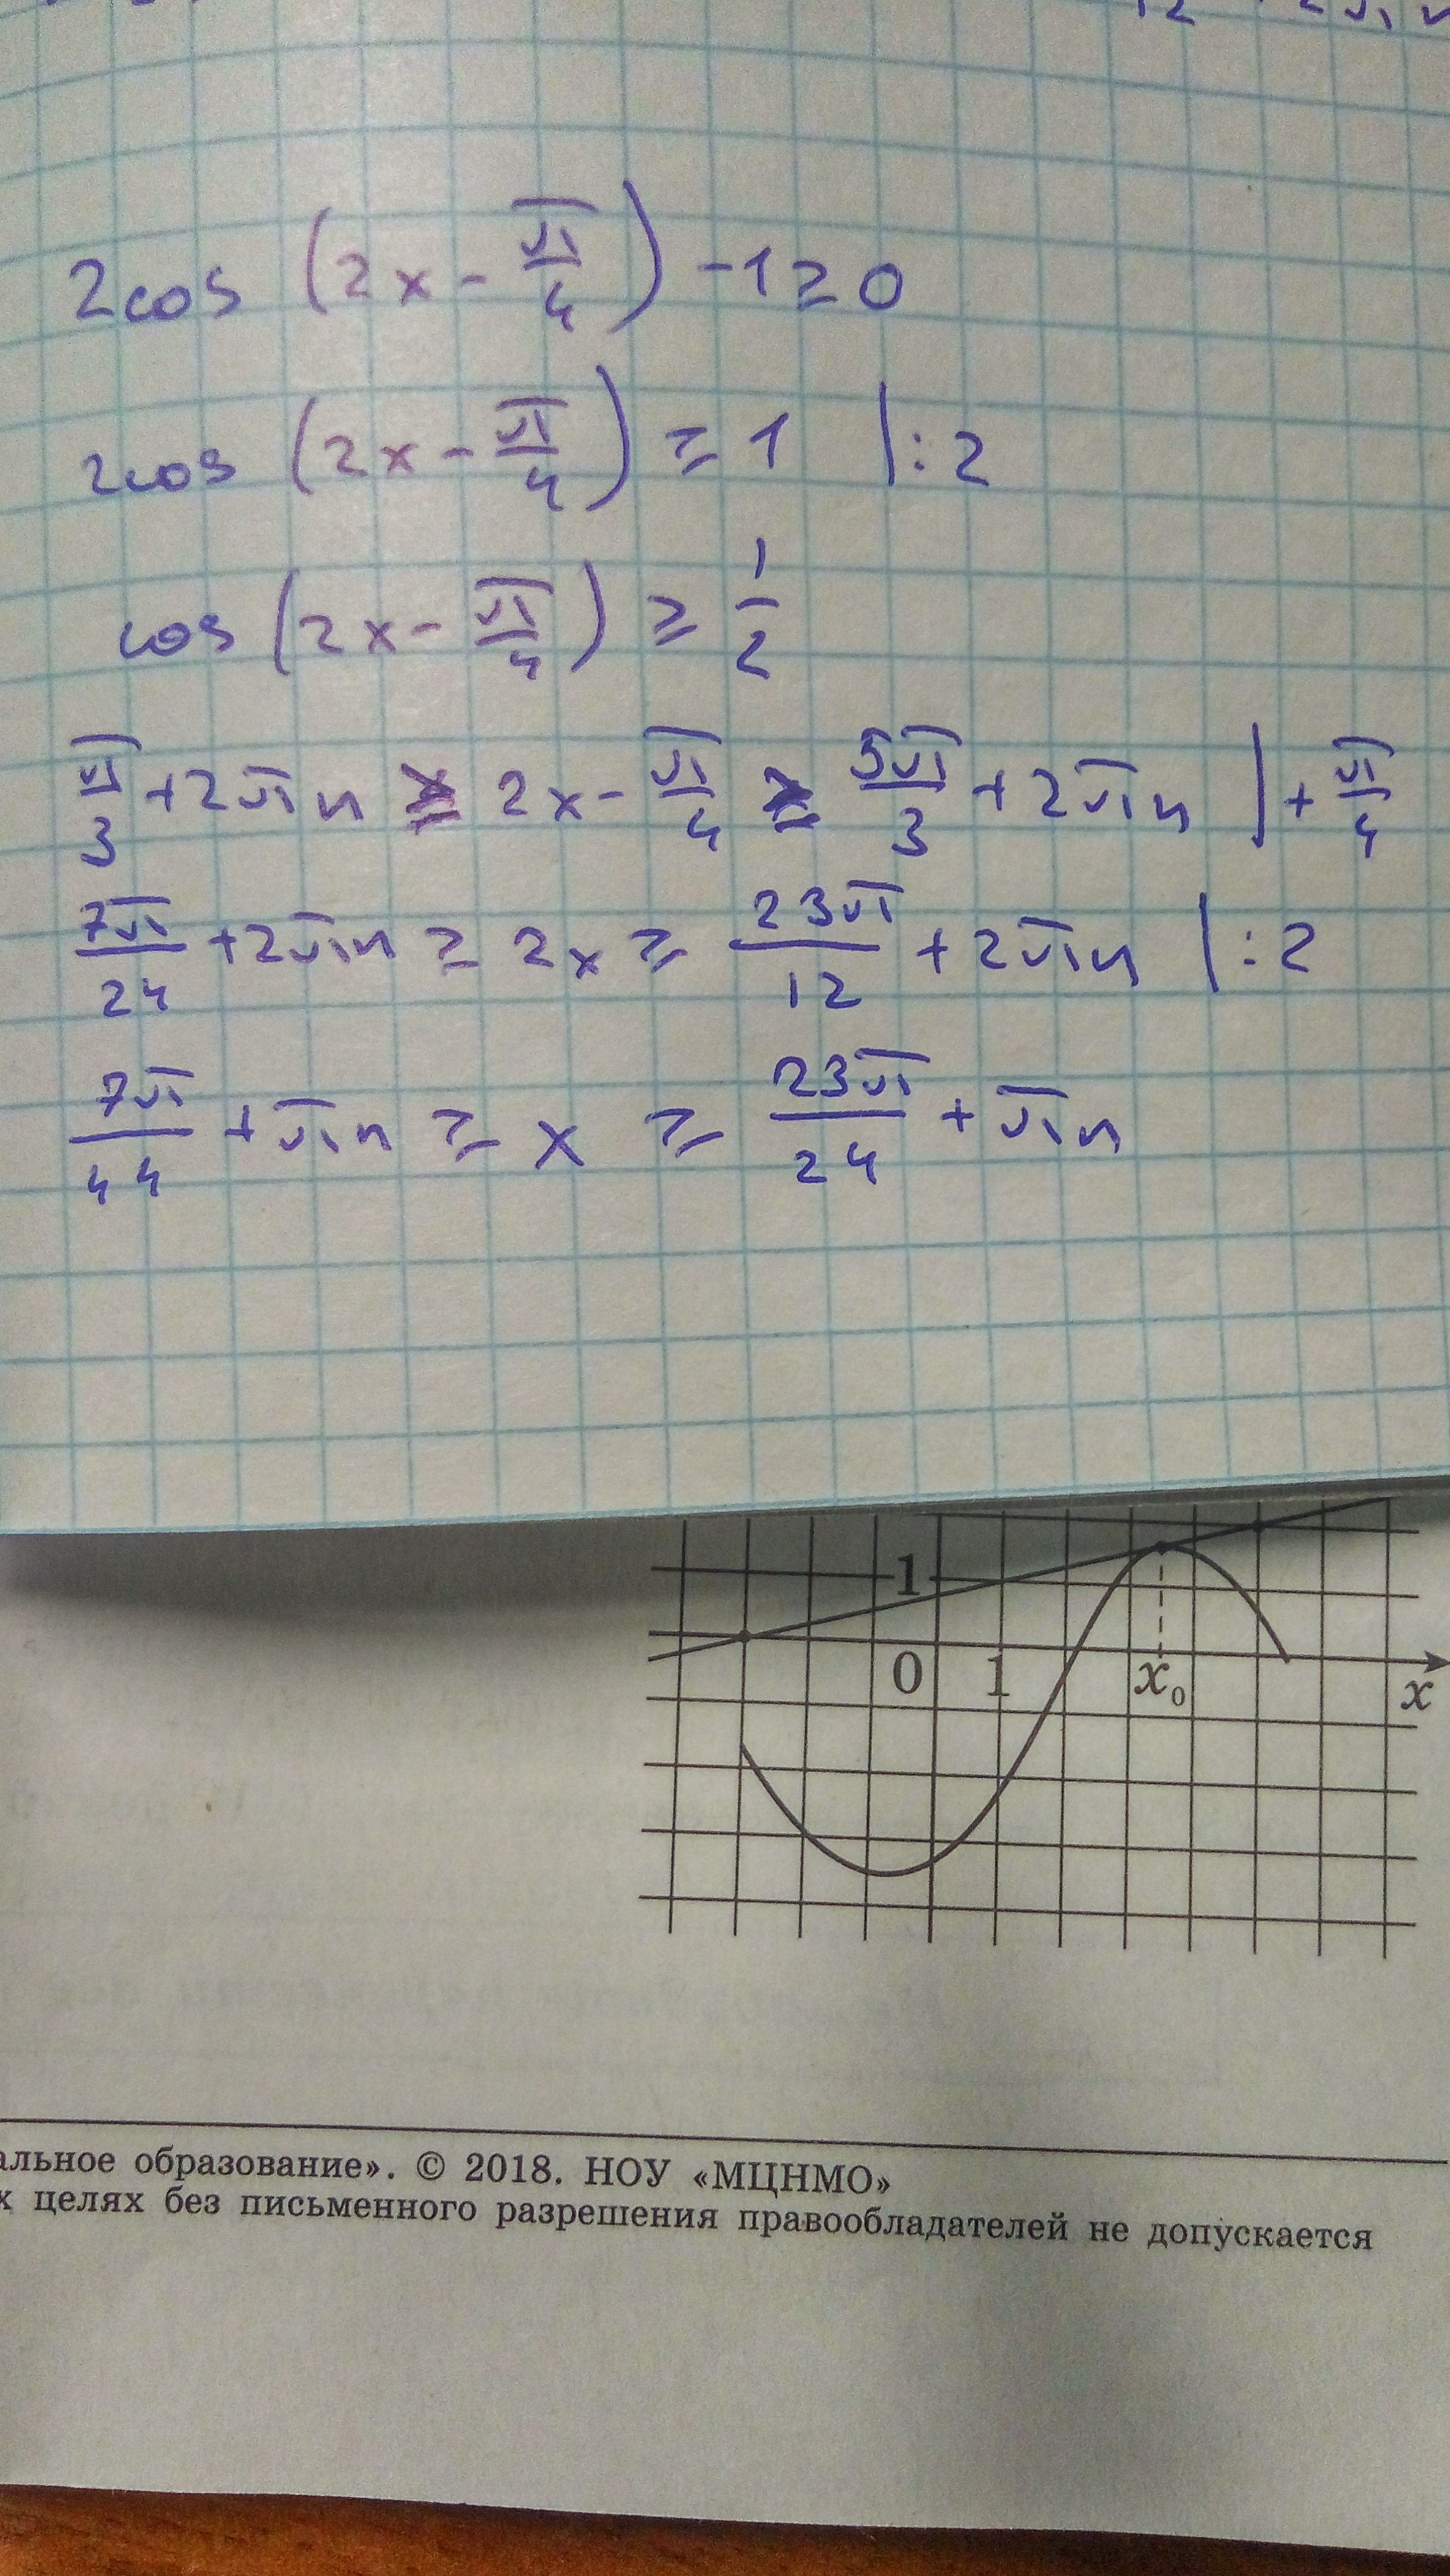 2cos (2x - π/4) - 1 ≥ 0
2cos (2x - π/4) ≥ 1 | : 2
cos (2x - π/4) ≥ 1/2
π/3 + 2πn ≥ 2x - π/4 ≥ 5π/3 + 2πn | + π/4
7π/24 + 2πn ≥ 2x ≥ 23π/12 + 2πn | : 2
7π/44 + πn ≥ x ≥ 23π/24 + πn
1
0 1 x₀ x
альное образование». © 2018. НОУ «МЦНМО»
х целях без письменного разрешения правообладателей не допускается